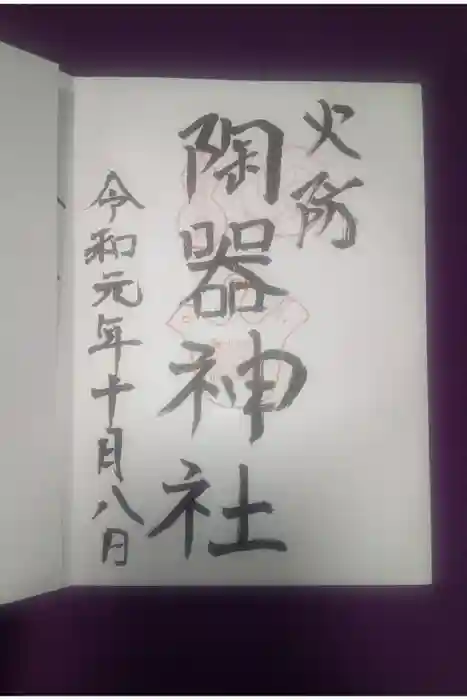 火防
陶器神社
令和元年十月八日